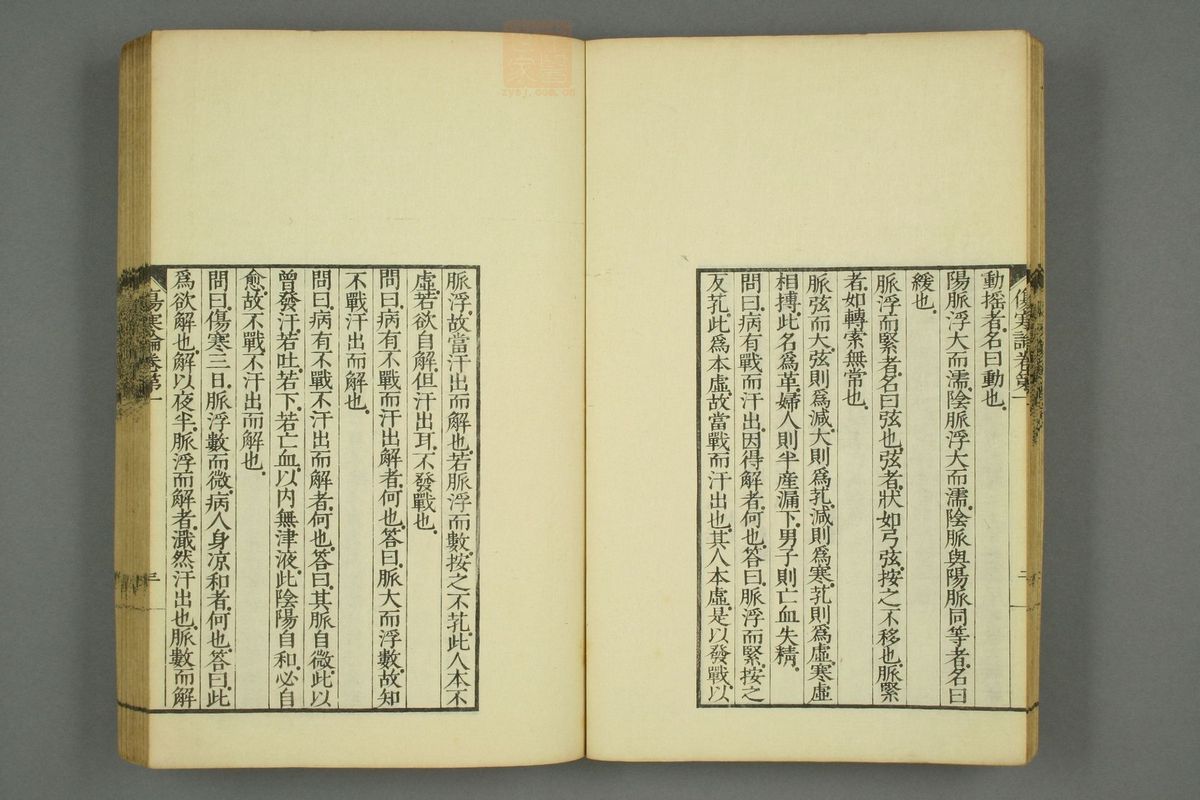 動搖者。名曰動也。
陽脈浮大而濡。陰脈浮大而濡。陰脈與陽脈同等者。名曰
緩也。
脈浮而緊者。名曰弦也。弦者。狀如弓弦。按之不移也。脈緊
者。如轉索無常也。
脈弦而大。弦則爲減。大則爲芤。減則爲寒。芤則爲虛。寒虛
相搏。此名爲革。婦人則半產漏下。男子則亡血失精。
問曰。病有戰而汗出。因得解者。何也。答曰。脈浮而緊。按之
反芤。此爲本虛。故當戰而汗出也。其人本虛。是以發戰。以
脈浮。故當汗出而解也。若脈浮而數。按之不芤。此人本不
虛。若欲自解。但汗出耳。不發戰也。
問曰。病有不戰而汗出解者。何也。答曰。脈大而浮數。故知
不戰汗出而解也。
問曰。病有不戰不汗出而解者。何也。答曰。其脈自微。此以
曾發汗。若吐。若下。若亡血。以內無津液。此陰陽自和。必自
愈。故不戰。不汗出而解也。
問曰。傷寒三日。脈浮數而微。病人身凉和者。何也。答曰。此
爲欲解也。解以夜半。脈浮而解者。濈然汗出也。脈數而解
傷寒論卷第一
三
zysj.com.cn